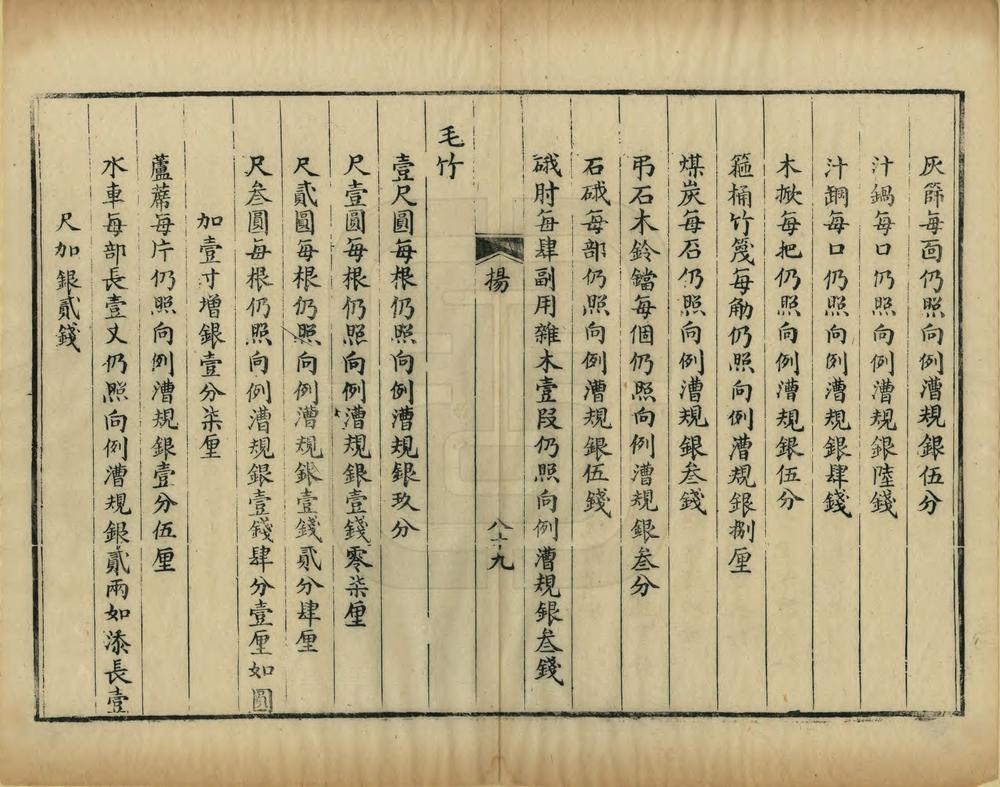 灰篩每面仍照向例漕規銀伍分
汁鍋每口仍照向例漕規銀陸錢
汁鋼每口仍照向例漕規銀肆錢
木掀每把仍照向例漕規銀伍分
箍桶竹篾每觔仍照向例漕規銀捌厘
煤炭每石仍照向例漕規銀叁錢
弔石木鈴鐺每個仍照向例漕規銀叁分
石硪每部仍照向例漕規銀伍錢
硪肘每肆副用雜木壹段仍照向例漕規銀叁錢
揚
八十九
毛竹
壹尺圓每根仍照向例漕規銀玖分
尺壹圓每根仍照向例漕規銀壹錢零柒厘
尺貳圓每根仍照向例漕規銀壹錢貳分肆厘
尺叁圓每根仍照向例漕規銀壹錢肆分壹厘如圓
加壹寸增銀壹分柒厘
蘆蓆每片仍照向例漕規銀壹分伍厘
水車每部長壹丈仍照向例漕規銀貳兩如添長壹
尺加銀貳錢